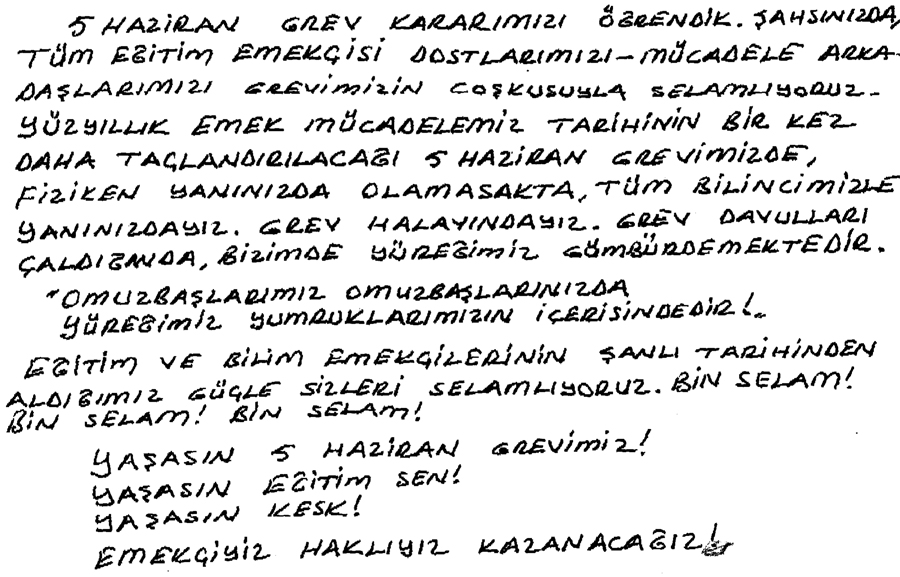 5 HAZİRAN GREV KARARIMIZI ÖĞRENDİK. ŞAHSINIZDA,
TÜM EĞİTİM EMEKÇİSİ DOSTLARIMIZI-MÜCADELE ARKA-
DAŞLARIMIZI GREVİMİZİN COŞKUSUYLA SELAMLIYORUZ.
YÜZYILLIK EMEK MÜCADELEMİZ TARİHİNİN BİR KEZ
DAHA TAÇLANDIRILACAĞI 5 HAZİRAN GREVİMİZDE,
FİZİKEN YANINIZDA OLAMASAKTA, TÜM BİLİNCİMİZLE
YANINIZDAYIZ. GREV HALAYINDAYIZ. GREV DAVULLARI
ÇALDIĞINDA, BİZİMDE YÜREĞİMİZ GÜMBÜRDEMEKTEDİR.
"OMUZBAŞLARIMIZ OMUZBAŞLARINIZDA
YÜREĞİMİZ YUMRUKLARIMIZIN İÇERİSİNDEDİR!..
EĞİTİM VE BİLİM EMEKÇİLERİNİN ŞANLI TARİHİNDEN
ALDIĞIMIZ GÜÇLE SİZLERİ SELAMLIYORUZ. BİN SELAM!
BİN SELAM! BİN SELAM!
YAŞASIN 5 HAZİRAN GREVİMİZ!
YAŞASIN EĞİTİM SEN!
YAŞASIN KESK!
EMEKÇİYİZ HAKLIYIZ KAZANACAĞIZ!